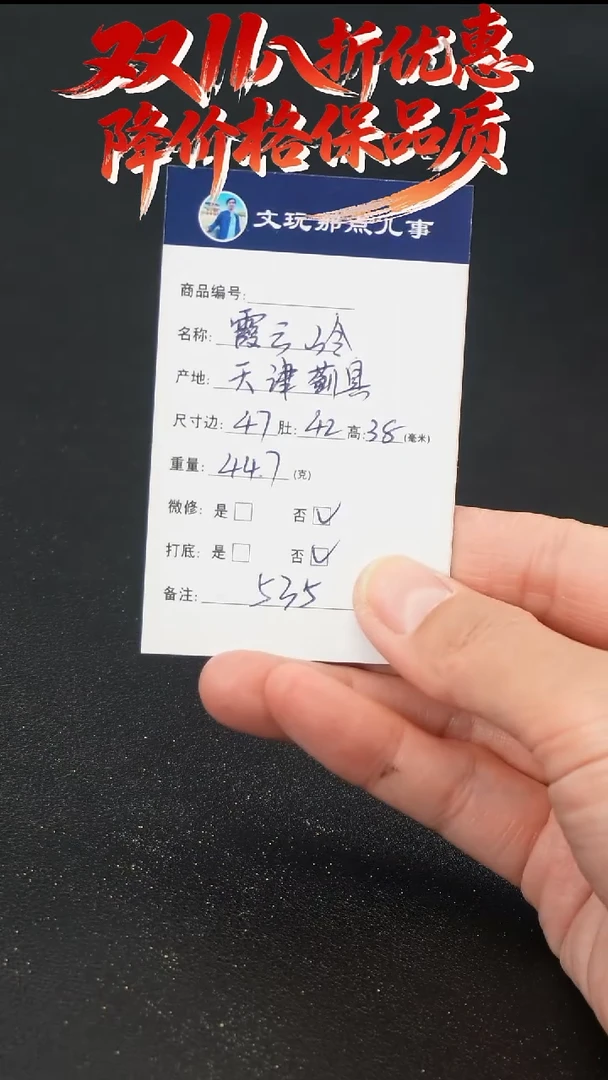 双11八折优惠
降价格保品质
文玩那点儿事
商品编号:
名称: 霞云岭
产地: 天津蓟县
尺寸边: 47 肚: 42 高: 38 (毫米)
重量: 44.7 (克)
微修: 是 否
打底: 是 否
备注: 535